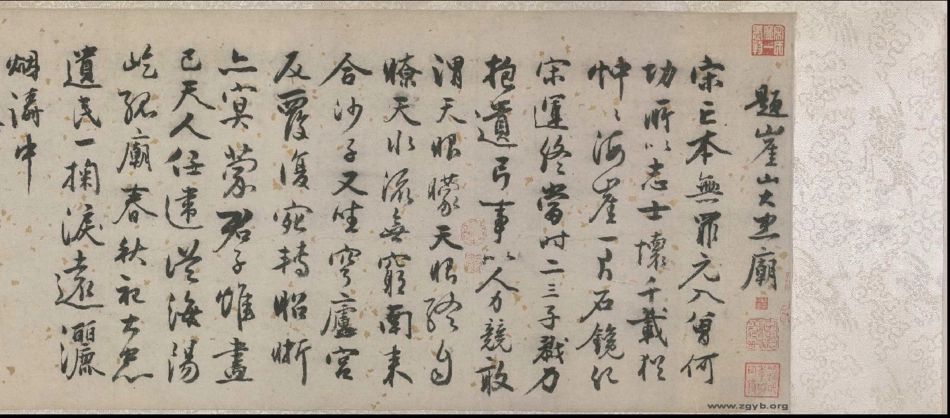 題崖山大忠廟
宋亡本無罪元入曾何
功所以志士懷千載猶
忡〻海崖一片石鏡紀
宋運終當時二三子戮力
抱遺弓事以人力競敢
謂天眼矇天眼終自
瞭天水派無窮南来
合沙子又生穹廬宮
反覆復宛轉昭晰
亦冥蒙君子惟盡
已天人任違從海湯
屹孤廟春秋祀大忠
遺民一掬淚遠灑
烟濤中
www.zgyb.org